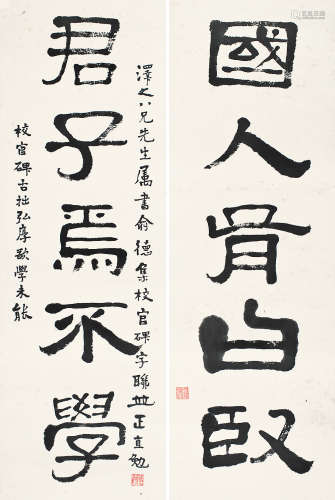 國人曰臤
君子焉不學
澤之八兄先生属書俞德集校官碑字聯並正直勉
校官碑古拙弘厚欲學未能